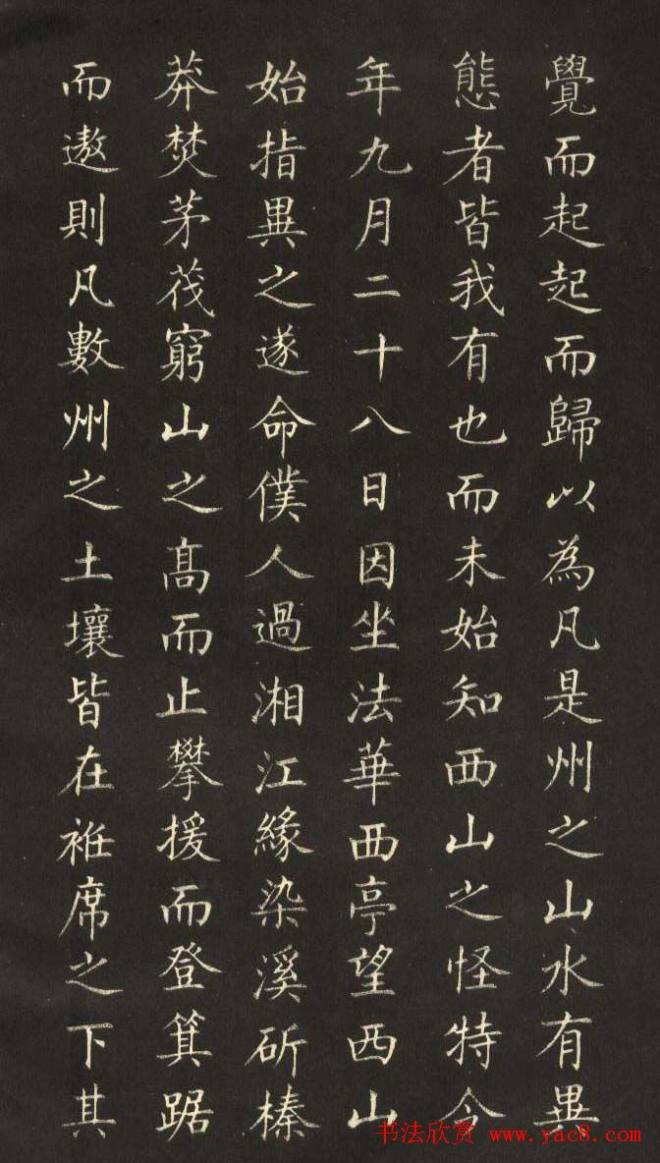 覺而起起而歸以為凡是州之山水有異
態者皆我有也而未始知西山之怪特今
年九月二十八日因坐法華西亭望西山
始指異之遂命僕人過湘江緣染溪斫榛
莽焚茅茷窮山之高而止攀援而登箕踞
而遨則凡數州之土壤皆在袵席之下其
书法欣赏 www.yac8.com